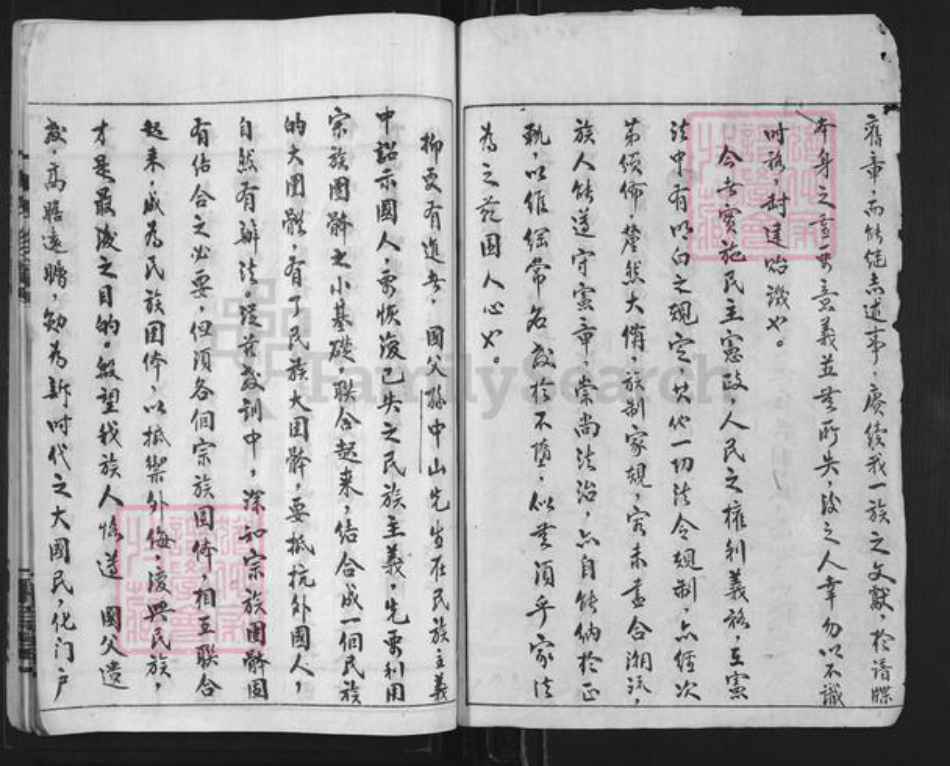 舊章，而能繼志述事，賡續我一族之文獻，於譜牒
本身之重要意義並無所失，後之人幸勿以不識
時務，封建貽譏也。
今者實施民主憲政，人民之權利義務，在憲
法中有明白之規定，其他一切法令規制，亦經次
第頒佈，釐然大備，族制家規，容未盡合潮流，
族人能遵守憲章，崇尚法治，亦自能納於正
軌，以維綱常名教於不墮，似無須乎家法
為之範圍人心也。
抑更有進者，國父孫中山先生在民族主義
中詔示國人，要恢復已失之民族主義，先要利用
宗族團體之小基礎，聯合起來，結合成一個民族
的大團體，有了民族大團體，要抵抗外國人，
自然有辦法。從茲教訓中，深知宗族團體固
有結合之必要，但須各個宗族團体，相互聯合
起來，成為民族团体，以抵禦外侮，復興民族，
才是最後之目的。殷望我族人恪遵 國父遺
教，高瞻遠矚，勉為新時代之大國民，化门户
FamilySearch